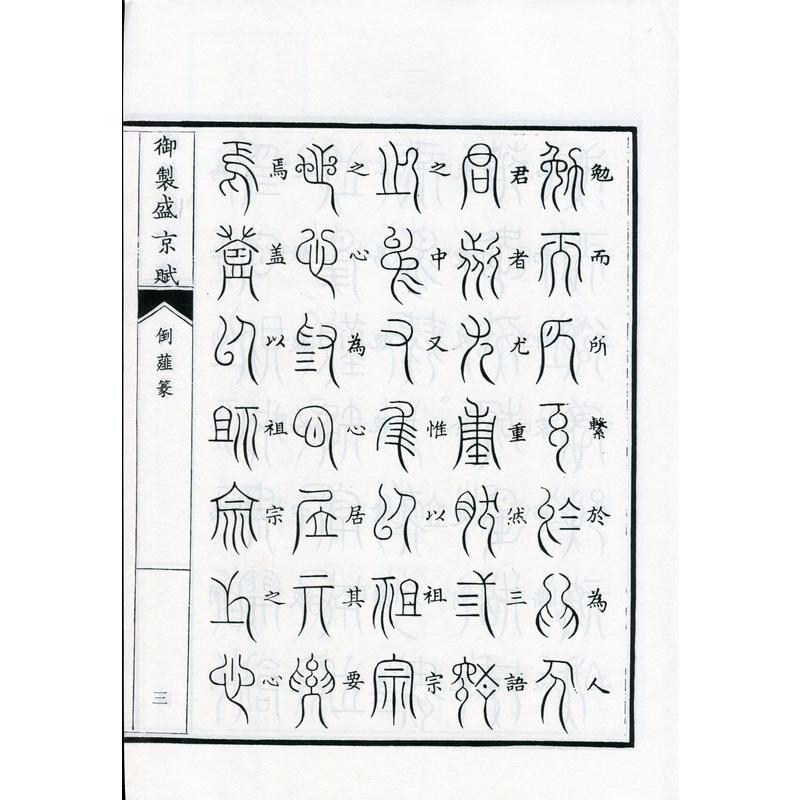 勉而所繫於為人
君者尤重然三語
之中又惟以祖宗
之心為心居其要
焉盖以祖宗之心
御製盛京賦
倒薤篆
三